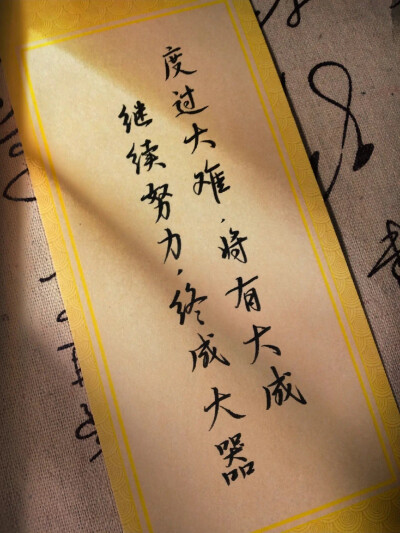 度过大难，将有大成
继续努力，终成大器